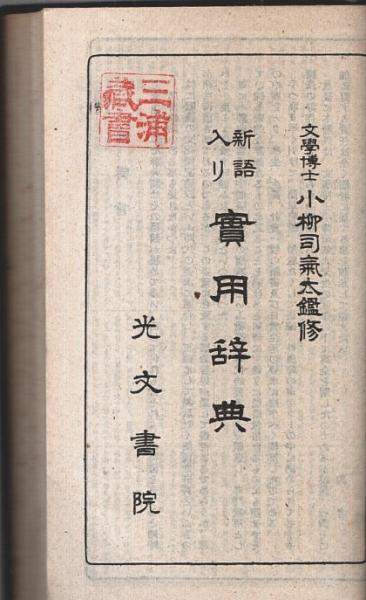 文學博士 小柳司氣太鑑修
新語
入り
實用辞典
光文書院
三浦
藏書